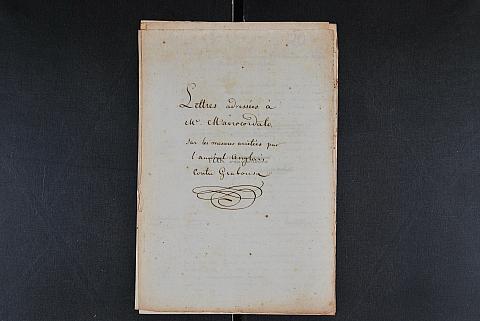 Lettres adressées à
Mr. Mavrocordato
sur les mesures arrêtées par
l'amiral Anglais
contre Grabousa